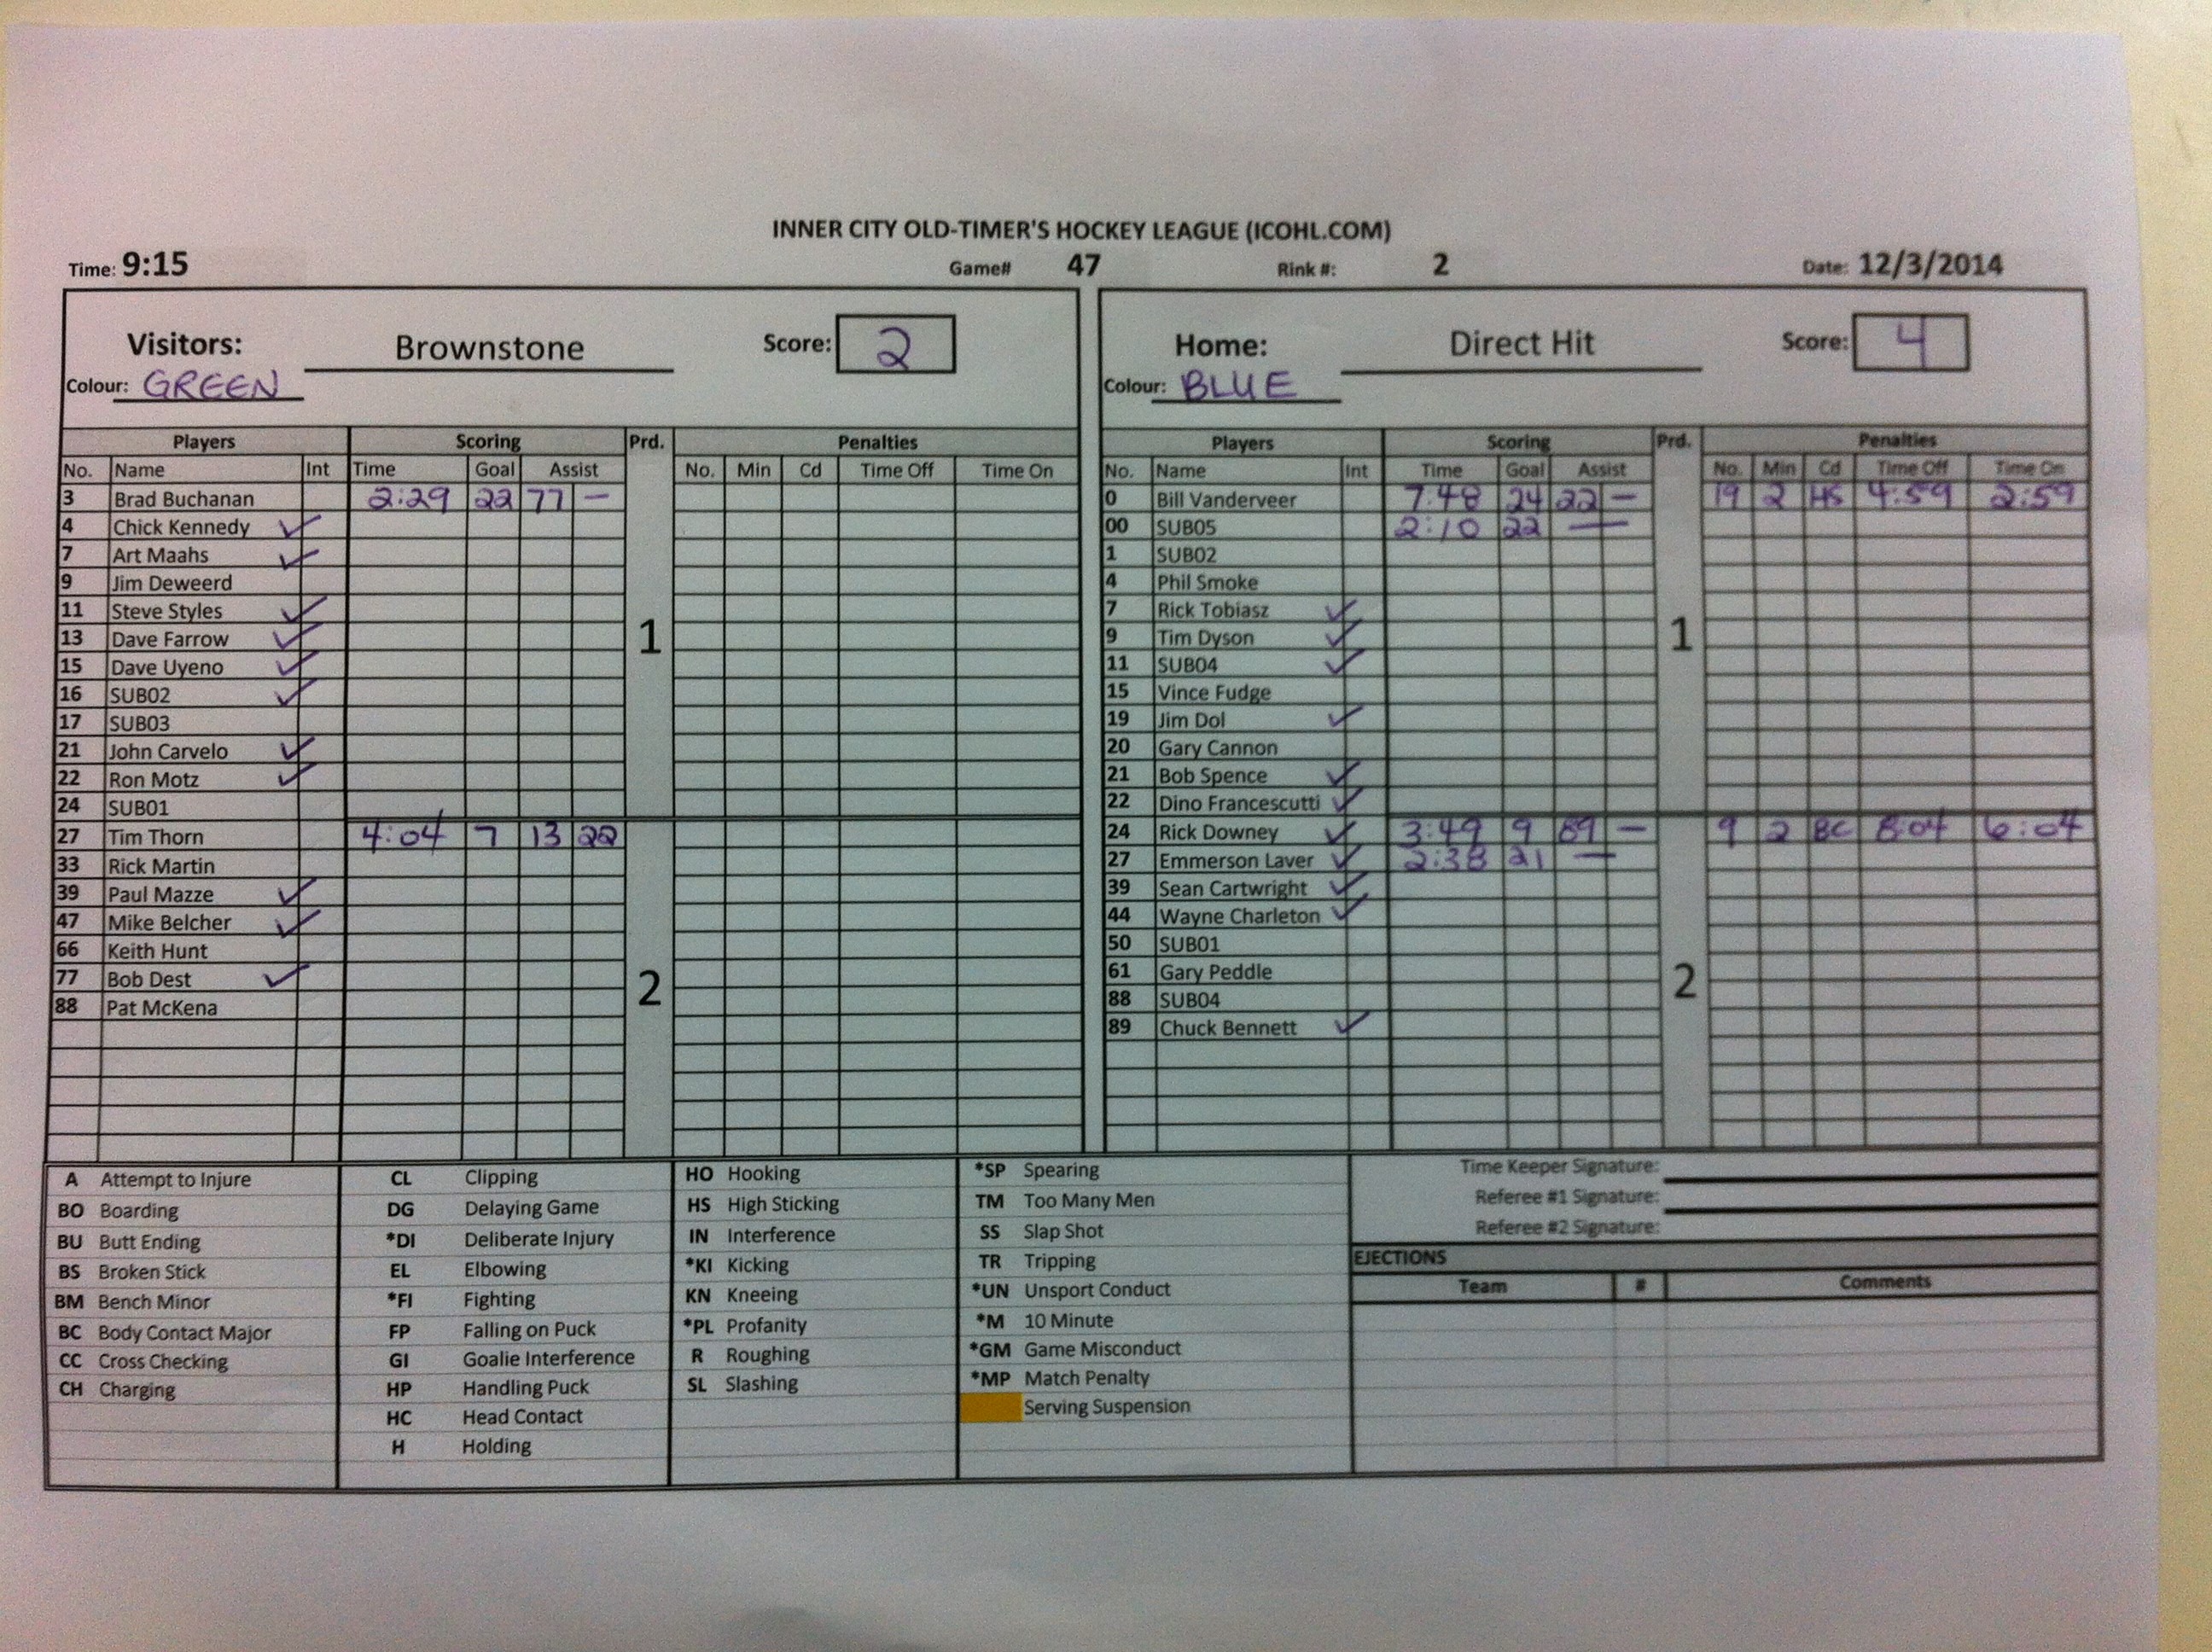 INNER CITY OLD-TIMER'S HOCKEY LEAGUE (ICOHL.COM)
Time: 9:15 Game# 47 Rink #: 2 Date: 12/3/2014
Visitors: Brownstone Score: 2
Colour: GREEN
Players Scoring Prd. Penalties
No. Name Int Time Goal Assist No. Min Cd Time Off Time On
3 Brad Buchanan 2:29 22 77 —
4 Chick Kennedy ✓
7 Art Maahs ✓
9 Jim Deweerd
11 Steve Styles ✓
13 Dave Farrow ✓ 1
15 Dave Uyeno ✓
16 SUB02 ✓
17 SUB03
21 John Carvelo ✓
22 Ron Motz ✓
24 SUB01
27 Tim Thorn 4:04 7 13 22
33 Rick Martin
39 Paul Mazze ✓
47 Mike Belcher ✓
66 Keith Hunt
77 Bob Dest ✓ 2
88 Pat McKena
Home: Direct Hit Score: 4
Colour: BLUE
Players Scoring Prd. Penalties
No. Name Int Time Goal Assist No. Min Cd Time Off Time On
0 Bill Vanderveer 7:48 24 22 — 19 2 HS 4:59 2:59
00 SUB05 2:10 22 —
1 SUB02
4 Phil Smoke
7 Rick Tobiasz ✓
9 Tim Dyson ✓ 1
11 SUB04 ✓
15 Vince Fudge
19 Jim Dol ✓
20 Gary Cannon
21 Bob Spence ✓
22 Dino Francescutti ✓
24 Rick Downey ✓ 3:49 9 89 — 9 2 BC 8:04 6:04
27 Emmerson Laver ✓ 2:38 21 —
39 Sean Cartwright ✓
44 Wayne Charleton ✓
50 SUB01
61 Gary Peddle 2
88 SUB04
89 Chuck Bennett ✓
A Attempt to Injure
BO Boarding
BU Butt Ending
BS Broken Stick
BM Bench Minor
BC Body Contact Major
CC Cross Checking
CH Charging
CL Clipping
DG Delaying Game
*DI Deliberate Injury
EL Elbowing
*FI Fighting
FP Falling on Puck
GI Goalie Interference
HP Handling Puck
HC Head Contact
H Holding
HO Hooking
HS High Sticking
IN Interference
*KI Kicking
KN Kneeing
*PL Profanity
R Roughing
SL Slashing
*SP Spearing
TM Too Many Men
SS Slap Shot
TR Tripping
*UN Unsport Conduct
*M 10 Minute
*GM Game Misconduct
*MP Match Penalty
Serving Suspension
Time Keeper Signature:
Referee #1 Signature:
Referee #2 Signature:
EJECTIONS
Team # Comments